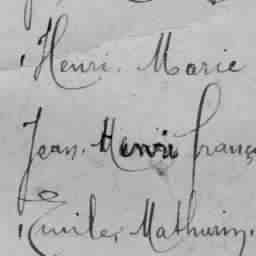 Henri. Marie
Jean. Henri franç
Emile, Mathurin.